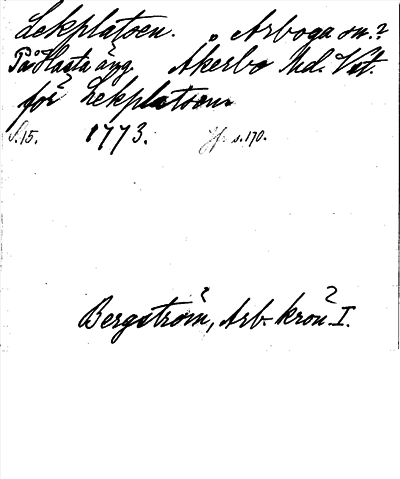 Lekplatsen. Arboga sn.?
På Hasta äng. Åkerbo hd. Vst.
för Lekplatsen
S. 15. 1773. Jfr s. 170.
Bergström, Arb. krön. I.